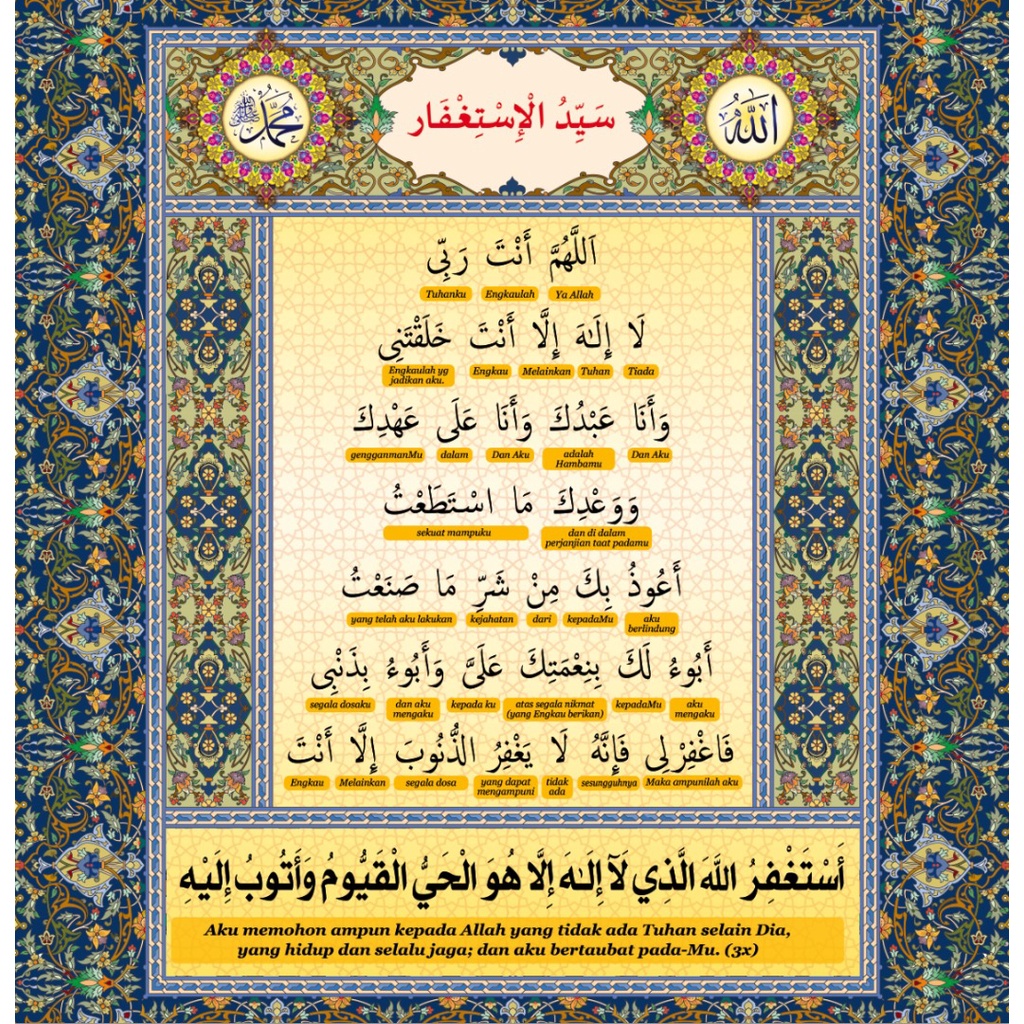 الله
سَيِّدُ الْإِسْتِغْفَار
محمد ﷺ
اَللَّهُمَّ أَنْتَ رَبِّى
Ya Allah Engkaulah Tuhanku
لَا إِلٰهَ إِلَّا أَنْتَ خَلَقْتَنِى
Tiada Tuhan Melainkan Engkau Engkaulah yg jadikan aku.
وَأَنَا عَبْدُكَ وَأَنَا عَلَى عَهْدِكَ
Dan Aku adalah Hambamu Dan Aku dalam gengganmanMu
وَوَعْدِكَ مَا اسْتَطَعْتُ
dan di dalam perjanjian taat padamu sekuat mampuku
أَعُوذُ بِكَ مِنْ شَرِّ مَا صَنَعْتُ
aku berlindung kepadaMu dari kejahatan yang telah aku lakukan
أَبُوءُ لَكَ بِنِعْمَتِكَ عَلَىَّ وَأَبُوءُ بِذَنْبِى
aku mengaku kepadaMu atas segala nikmat (yang Engkau berikan) kepada ku dan aku mengaku segala dosaku
فَاغْفِرْ لِى فَإِنَّهُ لَا يَغْفِرُ الذُّنُوبَ إِلَّا أَنْتَ
Maka ampunilah aku sesungguhnya tidak ada yang dapat mengampuni segala dosa Melainkan Engkau
أَسْتَغْفِرُ اللهَ الَّذِي لَآ إِلٰهَ إِلَّا هُوَ الْحَيُّ الْقَيُّومُ وَأَتُوبُ إِلَيْهِ
Aku memohon ampun kepada Allah yang tidak ada Tuhan selain Dia,
yang hidup dan selalu jaga; dan aku bertaubat pada-Mu. (3x)